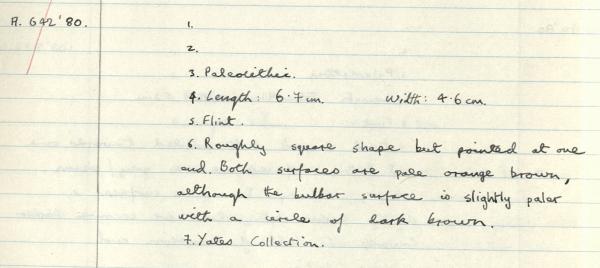 A. 642'80. 1.
2.
3. Paleolithic.
4. Length: 6.7 cm. Width: 4.6 cm.
5. Flint.
6. Roughly square shape but pointed at one
end. Both surfaces are pale orange brown,
although the bulbar surface is slightly paler
with a circle of dark brown.
7. Yates Collection.